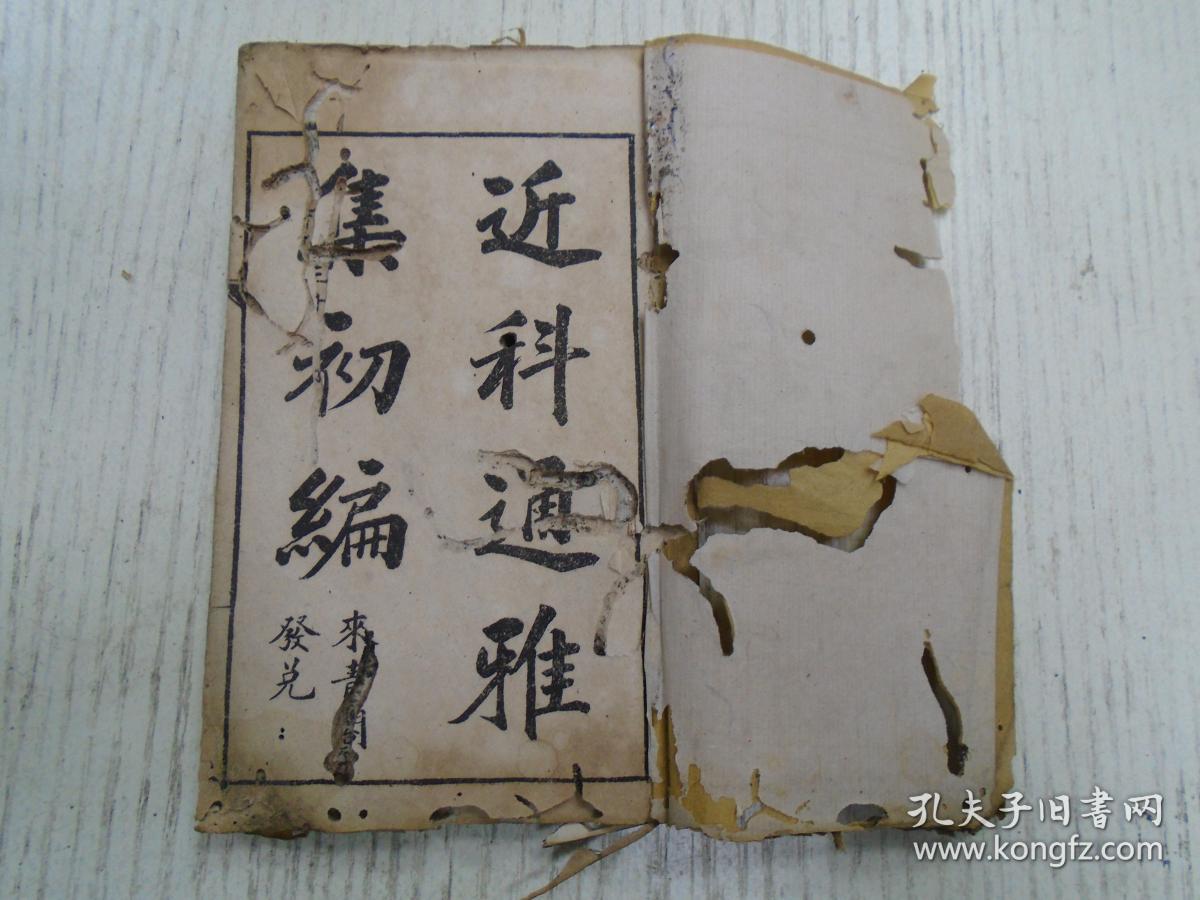 近科通雅
集初編
來青閣
發兌：
孔夫子旧书网
www.kongfz.com